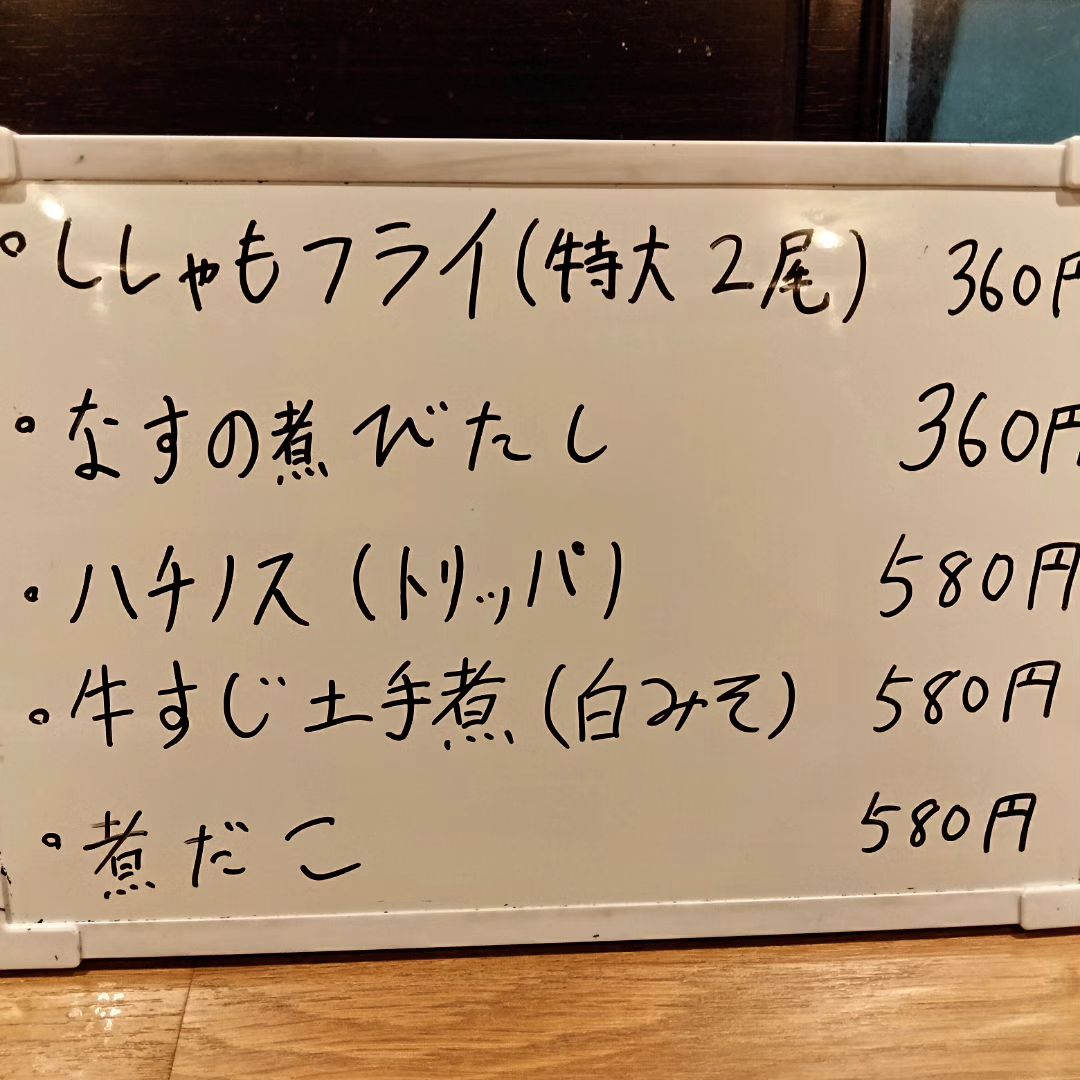 ・ししゃもフライ(特大2尾) 360円
・なすの煮びたし 360円
・ハチノス(トリッパ) 580円
・牛すじ土手煮(白みそ) 580円
・煮だこ 580円